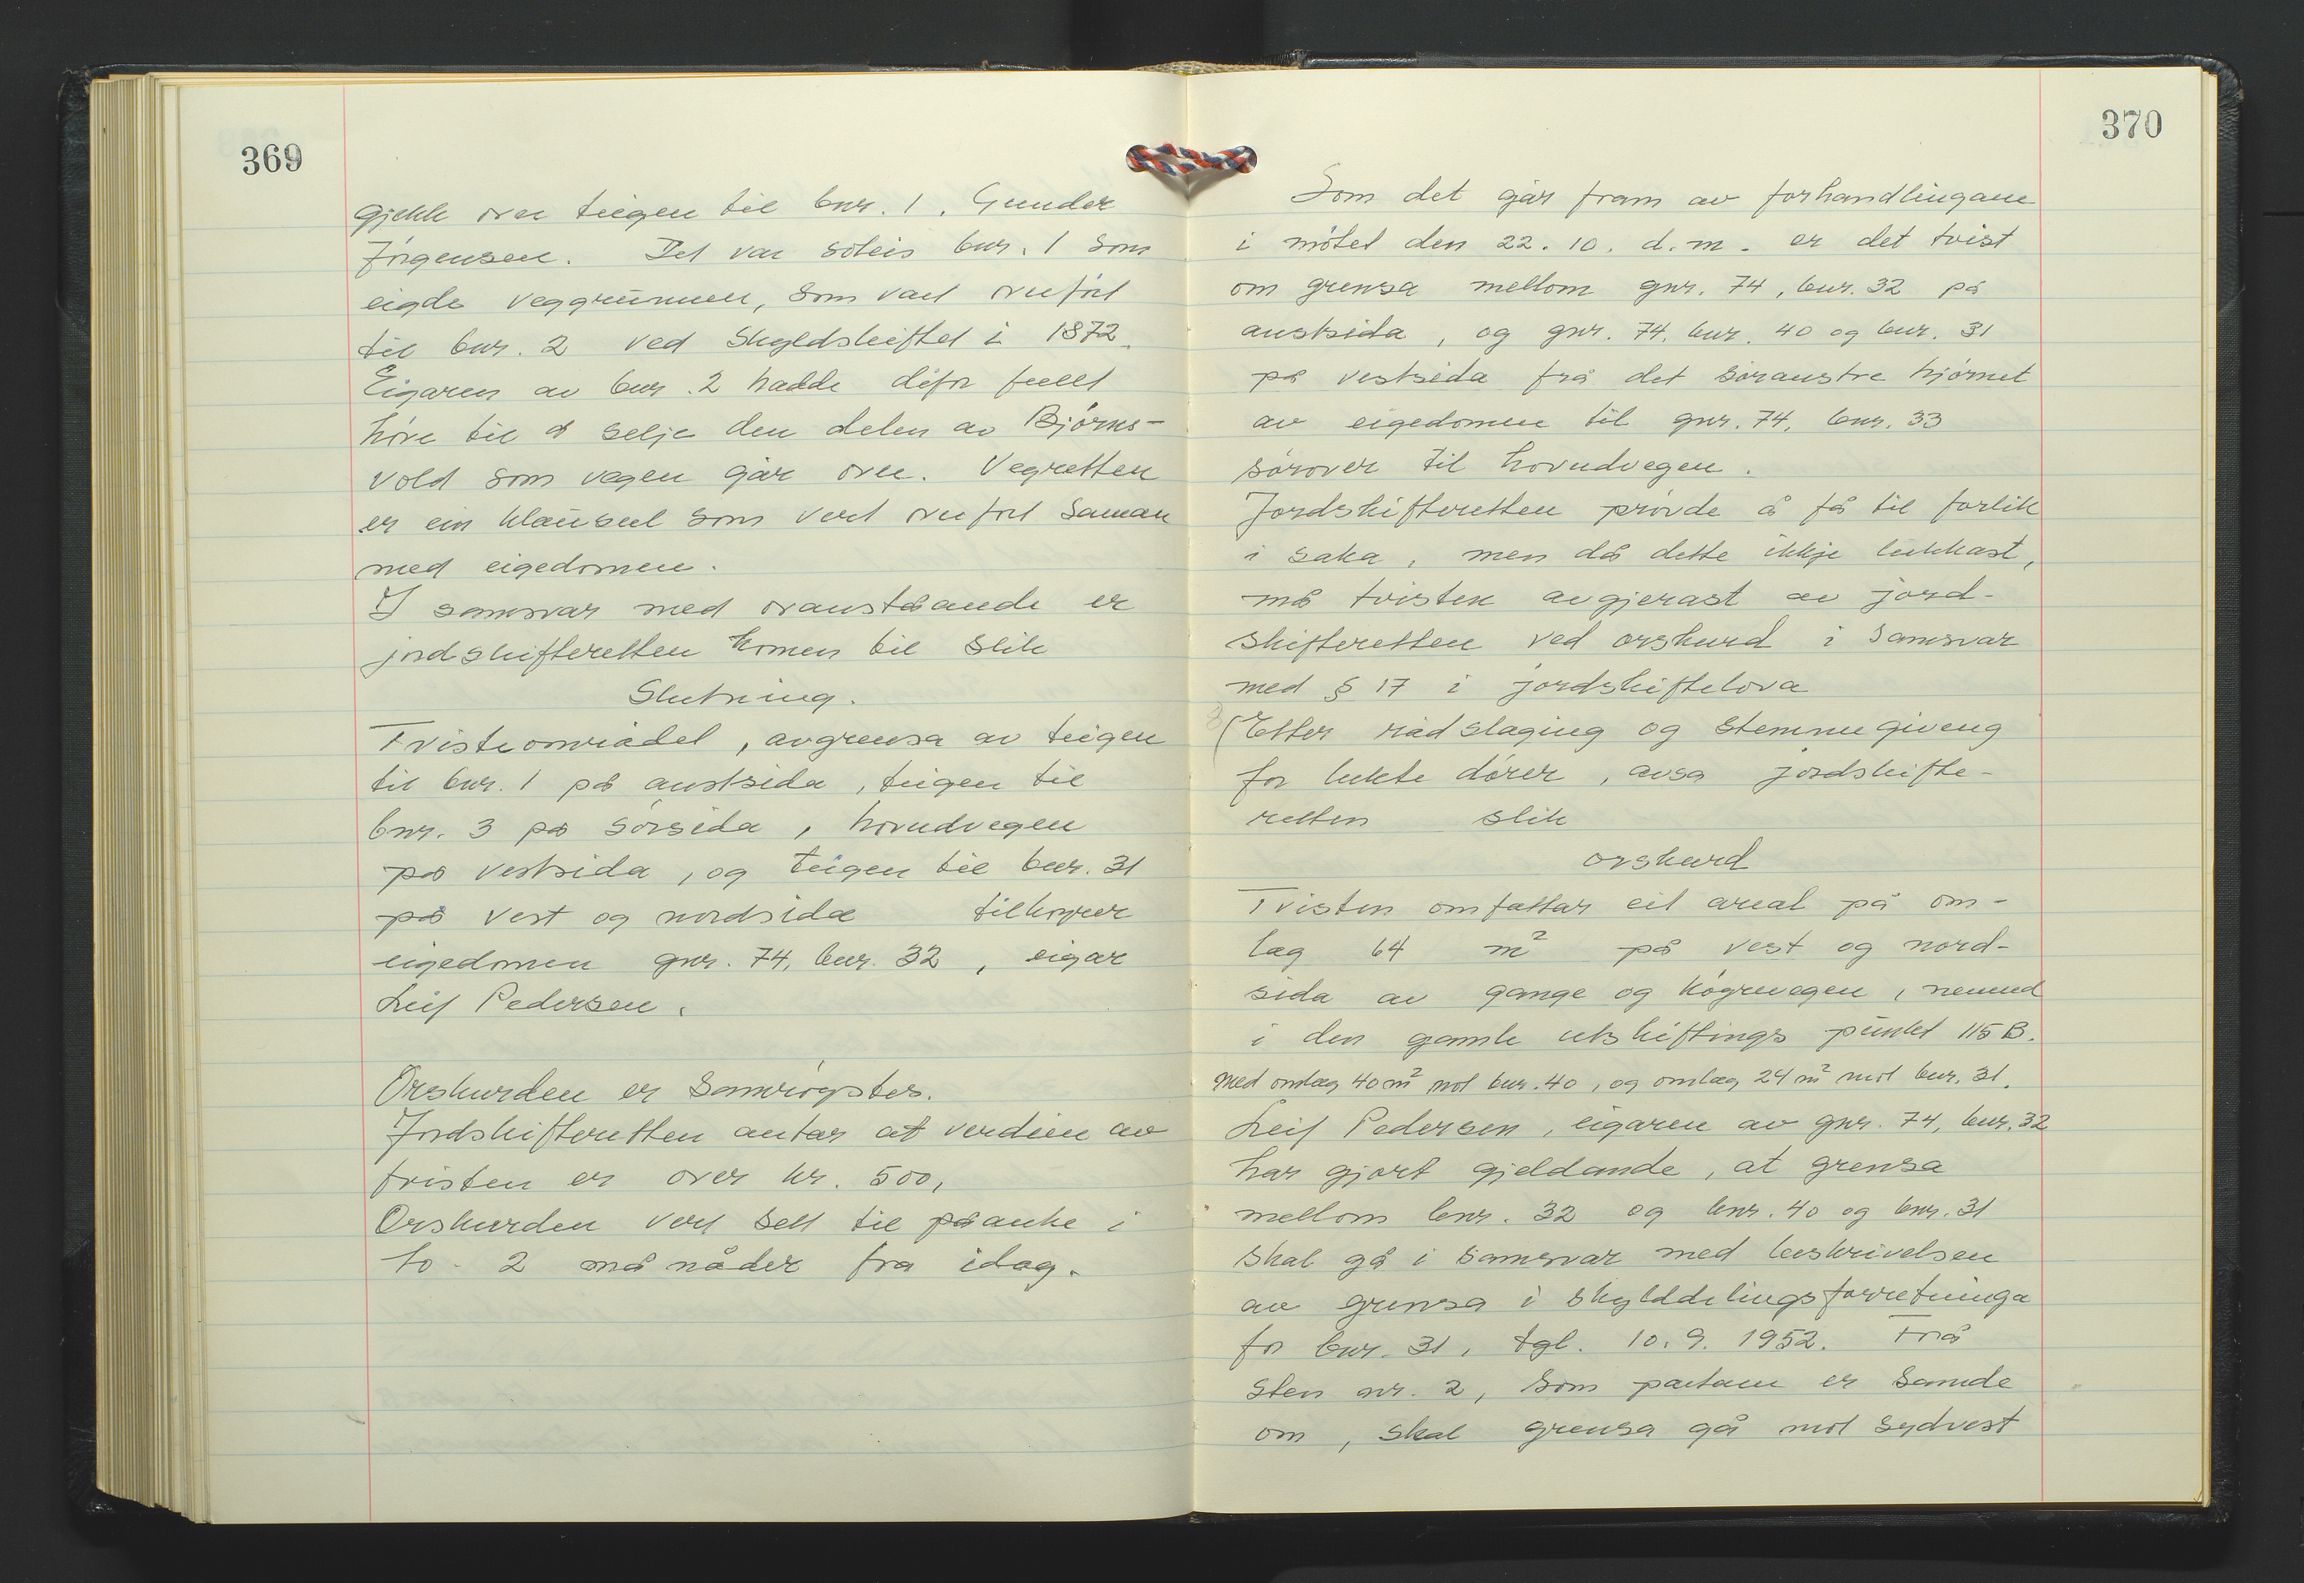 369
gjekk over teigen til bnr. 1. Gunder
Jörgensen. Det var soleis bnr. 1 som
eigde veggrunnen, som vart overført
til bnr. 2 ved Skyldskiftet i 1872.
Eigaren av bnr. 2 hadde difor fullt
höve til å selje den delen av Björns-
vold som vegen går over. Vegretten
er ein klausul som vert overført saman
med eigedomen.
I samsvar med ovanståande er
jordskifteretten komen til slik
Slutning.
Tvisteområdet, avgrensa av teigen
til bnr. 1 på austsida, teigen til
bnr. 3 på sörsida, hovudvegen
på vestsida, og teigen til bnr. 31
på vest og nordsida tilhøyrer
eigedomen gnr. 74, bnr. 32, eigar
Leif Pedersen.
Orskurden er samröystes.
Jordskifteretten antar at verdien av
tvisten er over kr. 500,
Orskurden vert sett til påanke i
to - 2 månåder fra idag.
370
Som det går fram av forhandlingane
i mötet den 22. 10. d. m. er det tvist
om grensa mellom gnr. 74, bnr. 32 på
austsida, og gnr. 74, bnr. 40 og bnr. 31
på vestsida frå det söraustre hjörnet
av eigedomen til gnr. 74, bnr. 33
sörover til hovudvegen.
Jordskifteretten prövde å få til forlik
i saka, men då dette ikkje lukkast,
må tvisten avgjerast av jord-
skifteretten ved orskurd i samsvar
med § 17 i jordskiftelova
(Etter rådslaging og stemmugiveng
for lukte dörer, avsa jordskifte-
retten slik
orskurd
Tvisten omfattar eit areal på om-
lag 64 m² på vest og nord-
sida av gange og kögrevegen, nemnd
i den gamle utskiftings punkt 115 B.
med omlag 40 m² mot bnr. 40, og omlag 24 m² mot bnr. 31.
Leif Pedersen, eigaren av gnr. 74, bnr. 32
har gjort gjeldande, at grensa
mellom bnr. 32 og bnr. 40 og bnr. 31
skal gå i samsvar med beskrivelsen
av grensa i skylddelingsforretninga
for bnr. 31, tgl. 10. 9. 1952. Frå
sten nr. 2, som partane er samde
om, skal grensa gå mot sydvest